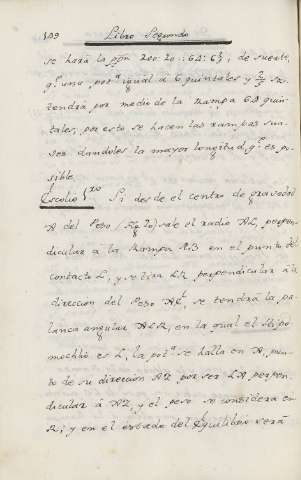 109 Libro Segundo
se hará la ppn 200:20::64:6⅖, de suerte,
q.e una, pot.a igual a 6 quintales y ⅖ sos-
tendrá por medio de la Rampa 64 quin-
tales, por esto se hacen las rampas sua-
ves dandoles la mayor longitud q.e es po-
sible.
Escolio 1.o Si desde el centro de gravedad
A del Peso (Fig. 20) sale el radio AL, perpen-
dicular á la Rampa RB en el punto del
contacto L, y se tira LR perpendicular á la
direccion del Peso se tendrá la pa-
lanca angular en la qual el Hipo-
mochlio es L, la pot.a se halla en A, pun-
to de su direccion AZ por ser LA perpen-
dicular á AZ, y el peso se considera en
R; y en el estado del Equilibrio será